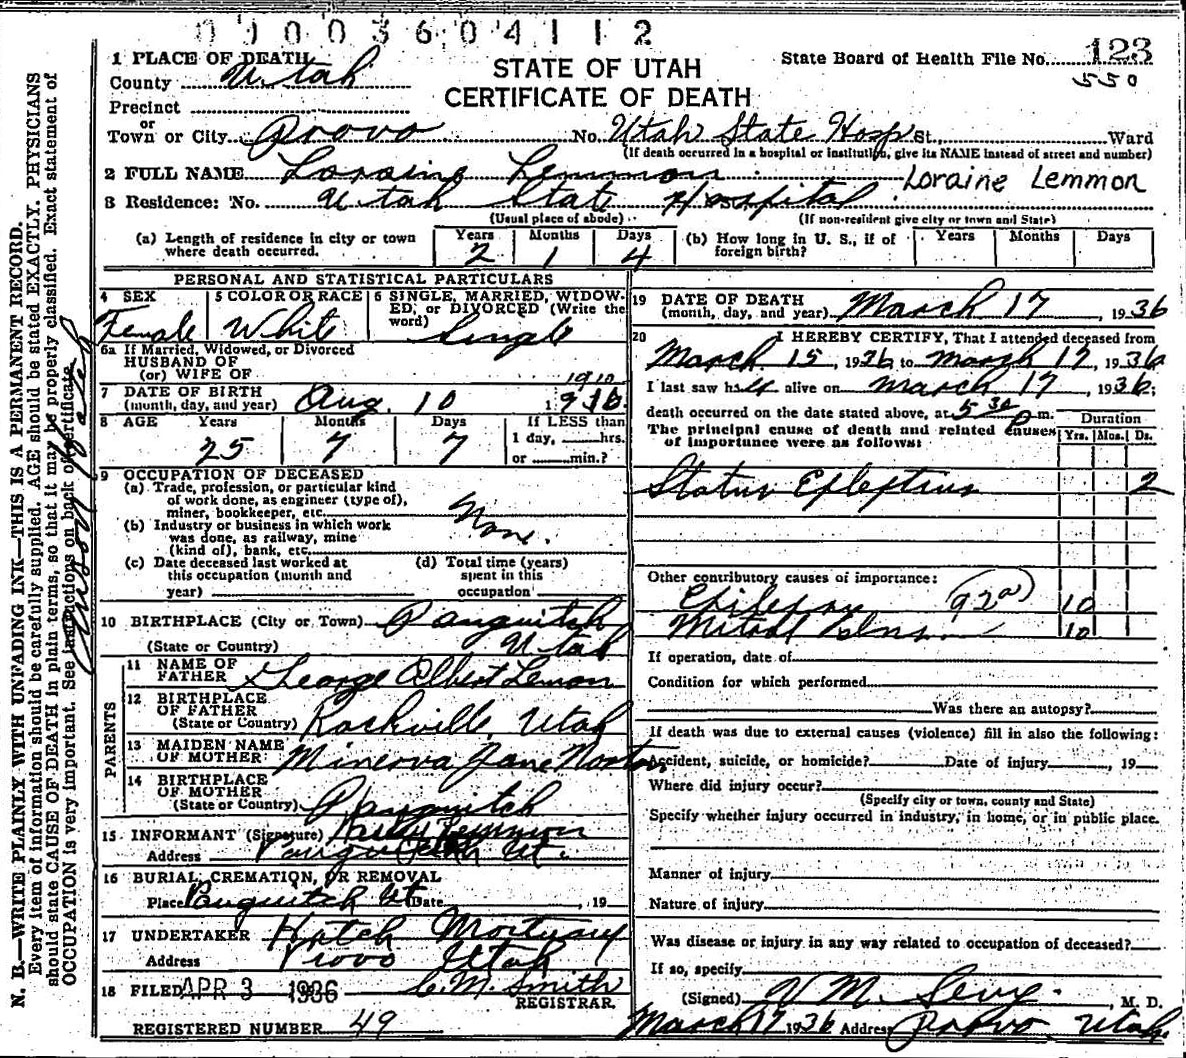 0 0 0 0 3 6 0 4 1 1 2
STATE OF UTAH
CERTIFICATE OF DEATH
State Board of Health File No. 123
550
1 PLACE OF DEATH
County Utah
Precinct
or
Town or City Provo No. Utah State Hosp St. Ward
(If death occurred in a hospital or institution, give its NAME instead of street and number)
2 FULL NAME Loraine Lemmon Loraine Lemmon
3 Residence: No. Utah State Hospital
(Usual place of abode) (If non-resident give city or town and State)
(a) Length of residence in city or town where death occurred. Years 2 Months 1 Days 4
(b) How long in U. S., if of foreign birth? Years Months Days
PERSONAL AND STATISTICAL PARTICULARS
4 SEX Female
5 COLOR OR RACE White
6 SINGLE, MARRIED, WIDOWED, or DIVORCED (Write the word) Single
6a If Married, Widowed, or Divorced
HUSBAND OF
(or) WIFE OF
1910
7 DATE OF BIRTH
(month, day, and year) Aug. 10 1910
8 AGE Years 25 Months 7 Days 7
If LESS than
1 day, hrs.
or min.?
9 OCCUPATION OF DECEASED
(a) Trade, profession, or particular kind
of work done, as engineer (type of),
miner, bookkeeper, etc. None.
(b) Industry or business in which work
was done, as railway, mine
(kind of), bank, etc.
(c) Date deceased last worked at
this occupation (month and
year)
(d) Total time (years)
spent in this
occupation
10 BIRTHPLACE (City or Town) Panguitch
(State or Country) Utah
PARENTS
11 NAME OF
FATHER George Albert Lemon
12 BIRTHPLACE
OF FATHER
(State or Country) Rockville, Utah
13 MAIDEN NAME
OF MOTHER: Minerva Jane Norton
14 BIRTHPLACE
OF MOTHER
(State or Country) Panguitch
15 INFORMANT (Signature) Lemmon
Address Panguitch Ut.
16 BURIAL, CREMATION, OR REMOVAL
Place Panguitch Ut Date , 19
17 UNDERTAKER Hatch Mortuary
Address Provo Utah
18 FILED APR 3 1936 C. M. Smith
REGISTRAR.
REGISTERED NUMBER 49
19 DATE OF DEATH
(month, day, and year) March 17 , 1936
20 I HEREBY CERTIFY, That I attended deceased from
March 15, 1936 to March 17, 1936
I last saw her alive on March 17 , 1936;
death occurred on the date stated above, at 5 30 P m.
The principal cause of death and related causes
of importance were as follows:
Duration
Yrs. Mos. Ds.
Status Epleptius 2
Other contributory causes of importance:
Epilepsy (92a) 10
Mitral 10
If operation, date of
Condition for which performed
Was there an autopsy?
If death was due to external causes (violence) fill in also the following:
Accident, suicide, or homicide? Date of injury , 19
Where did injury occur?
(Specify city or town, county and State)
Specify whether injury occurred in industry, in home, or in public place.
Manner of injury
Nature of injury
Was disease or injury in any way related to occupation of deceased?
If so, specify
(Signed) M. , M. D.
March 17 1936 Address Provo Utah
N. B.—WRITE PLAINLY WITH UNFADING INK—THIS IS A PERMANENT RECORD.
Every item of information should be carefully supplied. AGE should be stated EXACTLY. PHYSICIANS
should state CAUSE OF DEATH in plain terms, so that it may be properly classified. Exact statement of
OCCUPATION is very important. See instructions on back of certificate.